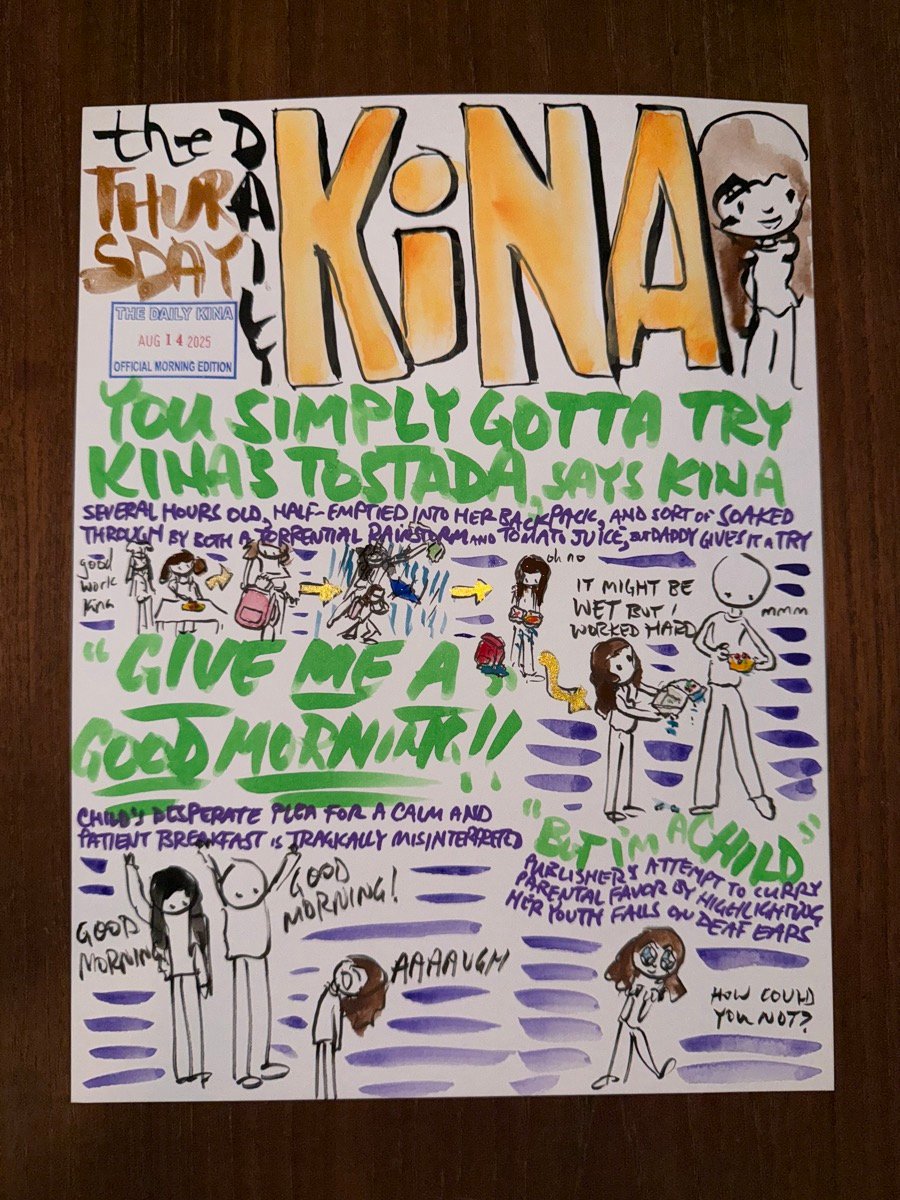 the
DAILY
THUR
SDAY
KiNA
THE DAILY KINA
AUG 14 2025
OFFICIAL MORNING EDITION
YOU SIMPLY GOTTA TRY
KINA'S TOSTADA, SAYS KINA
SEVERAL HOURS OLD, HALF-EMPTIED INTO HER BACKPACK, AND SORT OF SOAKED
THROUGH BY BOTH A TORRENTIAL RAINSTORM AND TOMATO JUICE, BUT DADDY GIVES IT A TRY
good
work
Kina
oh no
IT MIGHT BE
WET BUT I
WORKED HARD
mmm
"GIVE ME A
GOOD MORNING!!"
CHILD'S DESPERATE PLEA FOR A CALM AND
PATIENT BREAKFAST IS TRAGICALLY MISINTERPRETED
GOOD
MORNING
GOOD
MORNING!
AAAAUGH
"BUT I'M A CHILD"
PUBLISHER'S ATTEMPT TO CURRY
PARENTAL FAVOR BY HIGHLIGHTING
HER YOUTH FALLS ON DEAF EARS
HOW COULD
YOU NOT?